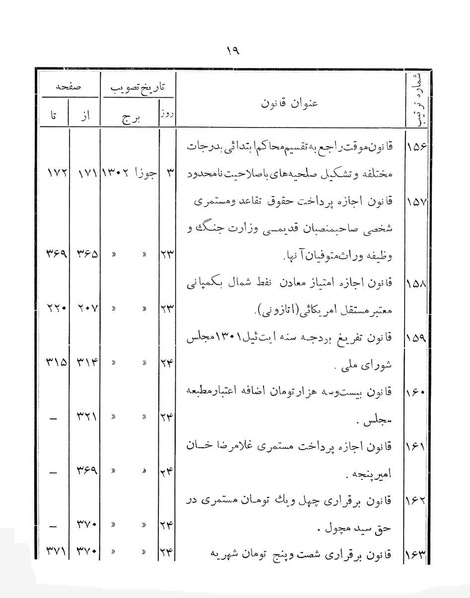 ۱۹
شماره ترتیب عنوان قانون تاریخ تصویب صفحه
روز برج از تا
۱۵۶ قانون موقت راجع به تقسیم محاکم ابتدائی بدرجات
مختلفه و تشکیل صلحیه‌های با صلاحیت نامحدود ۳ جوزا ۱۳۰۲ ۱۷۱ ۱۷۲
۱۵۷ قانون اجازه پرداخت حقوق تقاعد و مستمری
شخصی صاحبمنصبان قدیمی وزارت جنگ و
وظیفه وراث متوفیان آنها. ۲۳ » » ۳۶۵ ۳۶۹
۱۵۸ قانون اجازه امتیاز معادن نفط شمال بکمپانی
معتبر مستقل امریکائی (اتازونی). ۲۳ » » ۲۰۷ ۲۲۰
۱۵۹ قانون تفریغ بودجه سنه ایت‌ئیل ۱۳۰۱ مجلس
شورای ملی . ۲۴ » » ۳۱۴ ۳۱۵
۱۶۰ قانون بیست و سه هزار تومان اضافه اعتبار مطبعه
مجلس . ۲۴ » » ۳۲۱ –
۱۶۱ قانون اجازه پرداخت مستمری غلامرضا خان
امیر پنجه . ۲۴ » » ۳۶۹ –
۱۶۲ قانون برقراری چهل و یك تومان مستمری در
حق سید مچول . ۲۴ » » ۳۷۰ –
۱۶۳ قانون برقراری شصت و پنج تومان شهریه ۲۴ » » ۳۷۰ ۳۷۱